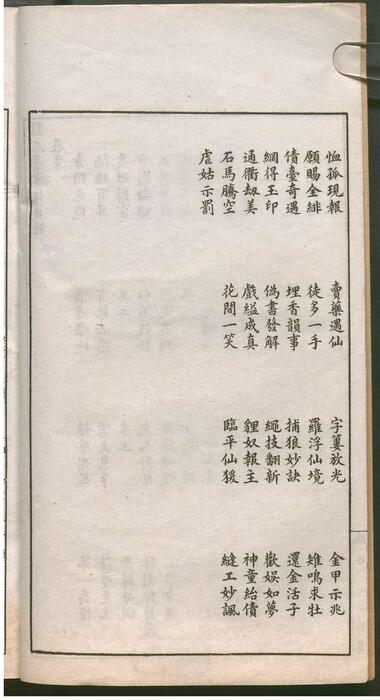 恤孤現報 賣藥遇仙 字簍放光 金甲示兆
願賜全緋 徒多一手 羅浮仙境 雉鳴求牡
債臺奇遇 埋香韻事 捕狼妙訣 還金活子
網得玉印 偽書發解 繩技翻新 歡娛如夢
通衢劫美 戲縊成真 貍奴報主 神童紿債
石馬騰空 花間一笑 臨平仙猨 縫工妙諷
虐姑示罰